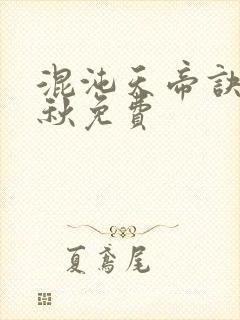 混沌天帝訣
秋免費
夏鳶尾